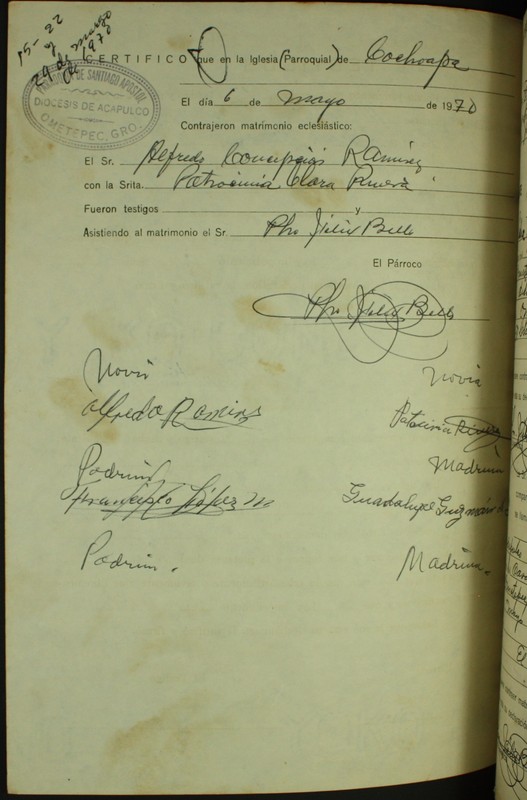 15-22
y
29 de marzo
de 1970
PARROQUIA DE SANTIAGO APOSTOL
DIOCESIS DE ACAPULCO
OMETEPEC, GRO.
CERTIFICO que en la Iglesia (Parroquial) de Cochoapa
El día 6 de mayo de 1970
Contrajeron matrimonio eclesiástico:
El Sr. Alfredo Concepción Ramírez
con la Srita. Patrocinia Clara Rivera
Fueron testigos y
Asistiendo al matrimonio el Sr. Pbro Bello
El Párroco
Pbro Bello
Novio Novia
Alfredo Ramirez Rivera
Padrino Madrina
Francisco López Guadalupe Guzmán
Padrino. Madrina.